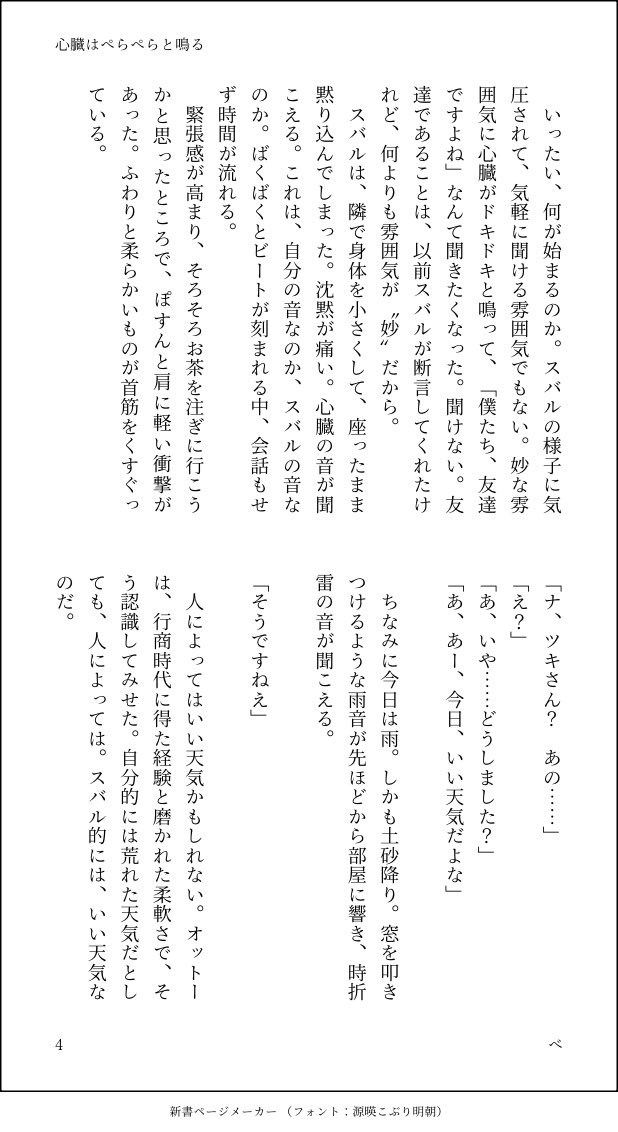 心臓はぺらぺらと鳴る
　いったい、何が始まるのか。スバルの様子に気
圧されて、気軽に聞ける雰囲気でもない。妙な雰
囲気に心臓がドキドキと鳴って、「僕たち、友達
ですよね」なんて聞きたくなった。聞けない。友
達であることは、以前スバルが断言してくれたけ
れど、何よりも雰囲気が〝妙〟だから。
　スバルは、隣で身体を小さくして、座ったまま
黙り込んでしまった。沈黙が痛い。心臓の音が聞
こえる。これは、自分の音なのか、スバルの音な
のか。ばくばくとビートが刻まれる中、会話もせ
ず時間が流れる。
　緊張感が高まり、そろそろお茶を注ぎに行こう
かと思ったところで、ぽすんと肩に軽い衝撃が
あった。ふわりと柔らかいものが首筋をくすぐっ
ている。
「ナ、ツキさん？　あの……」
「え？」
「あ、いや……どうしました？」
「あ、あー、今日、いい天気だよな」
　ちなみに今日は雨。しかも土砂降り。窓を叩き
つけるような雨音が先ほどから部屋に響き、時折
雷の音が聞こえる。
「そうですねえ」
　人によってはいい天気かもしれない。オットー
は、行商時代に得た経験と磨かれた柔軟さで、そ
う認識してみせた。自分的には荒れた天気だとし
ても、人によっては。スバル的には、いい天気な
のだ。
4
べ
新書ページメーカー（フォント：源暎こぶり明朝）